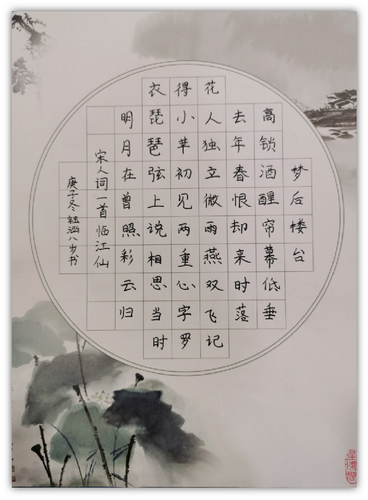 梦后楼台
高锁酒醒帘幕低垂
去年春恨却来时落
花人独立微雨燕双飞记
得小苹初见两重心字罗
衣琵琶弦上说相思当时
明月在曾照彩云归
宋人词一首临江仙
庚子冬轻涵八岁书